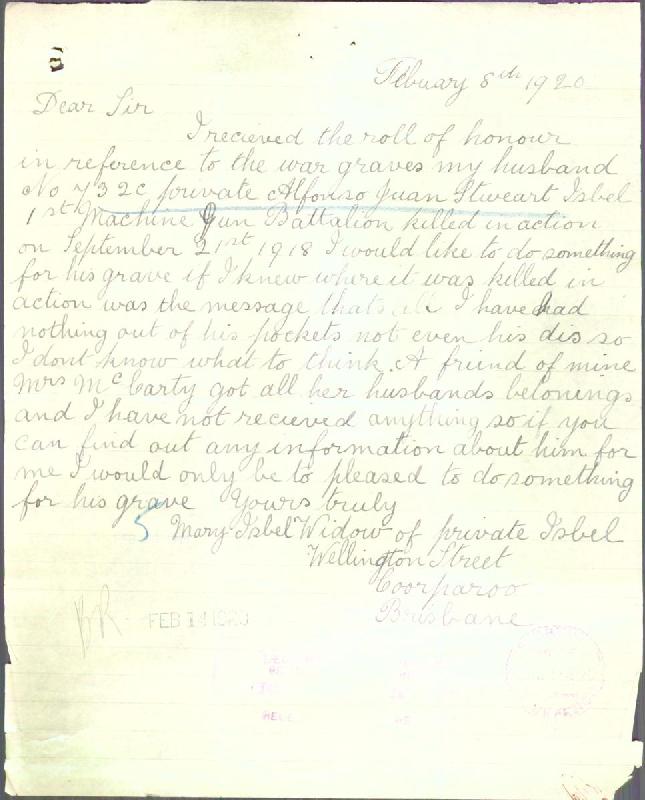 Febuary 8th 1920
Dear Sir
I recieved the roll of honour
in reference to the war graves my husband
No 732c private Alfonso Juan Stweart Isbel
1st Machine Gun Battalion killed in action
on September 21st 1918 I would like to do something
for his grave if I knew where it was killed in
action was the message thats all I have had
nothing out of his pockets not even his dis so
I dont know what to think. A friend of mine
Mrs McCarty got all her husbands belonings
and I have not recieved anything so if you
can find out any information about him for
me I would only be to pleased to do something
for his grave Yours truly
5 Mary Isbel Widow of private Isbel
Wellington Street
Coorparoo
Brisbane
BR FEB 14 1920